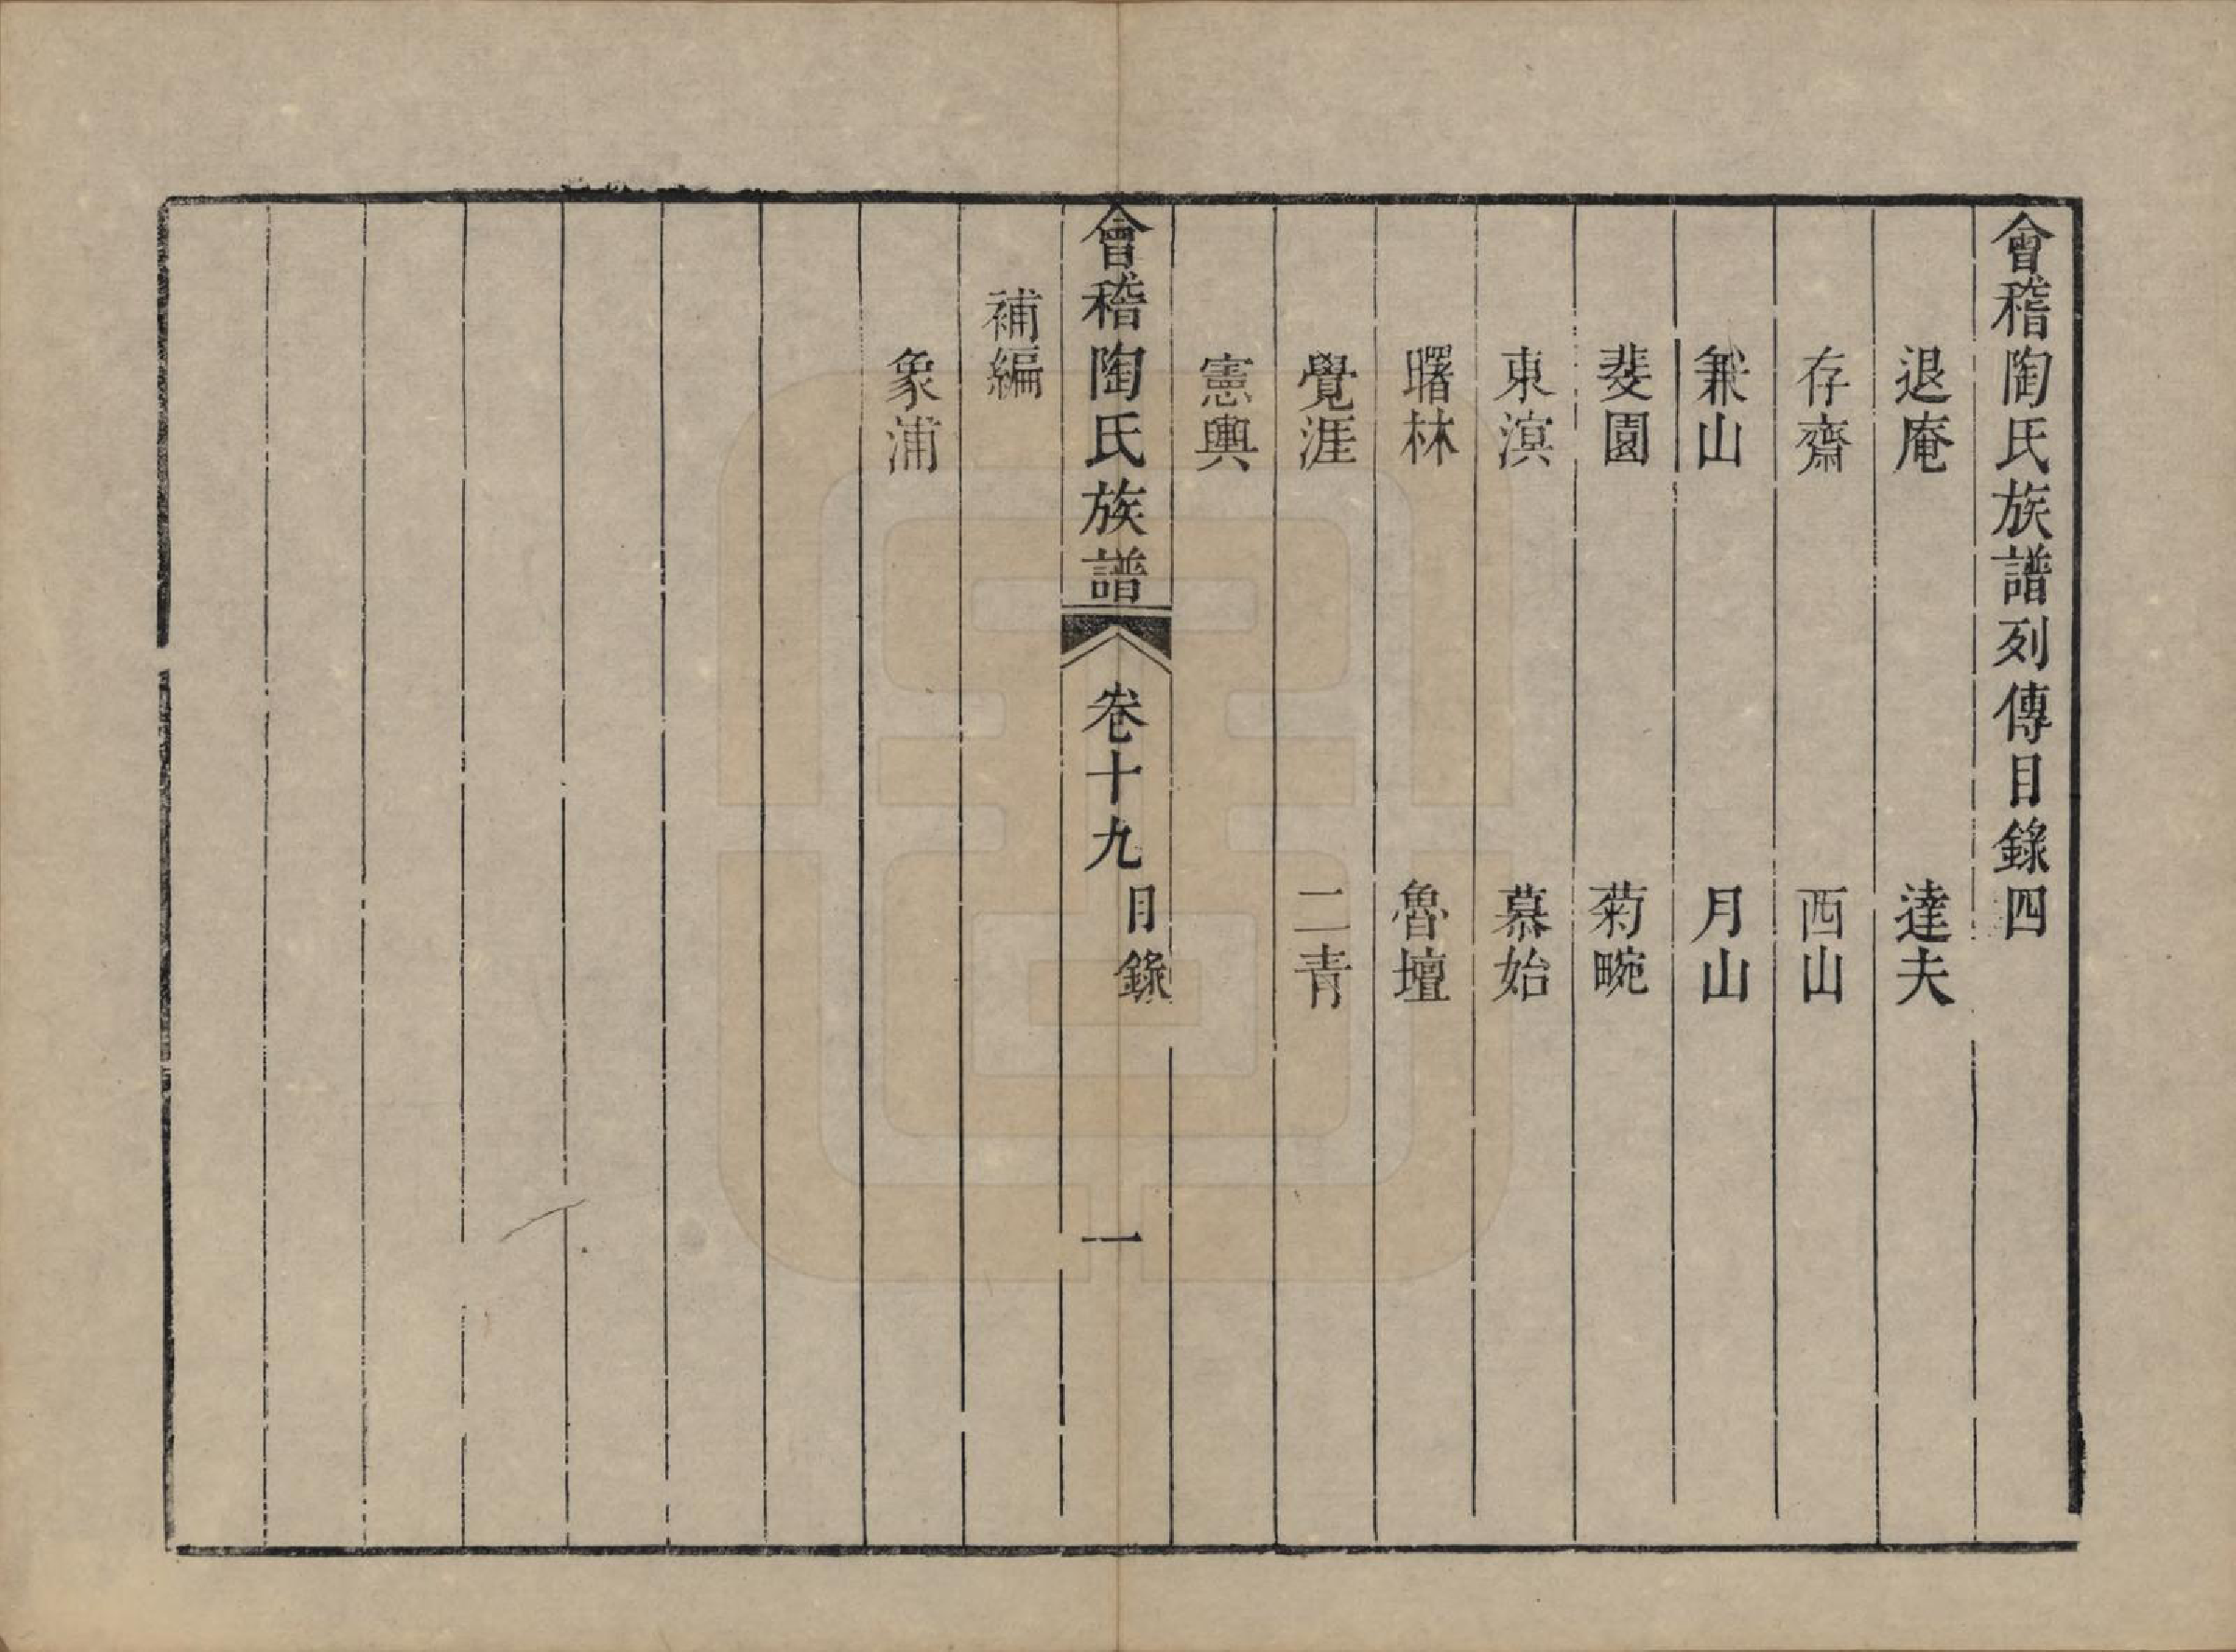 會稽陶氏族譜列傳目錄四
退庵　達夫
存齋　西山
兼山　月山
斐園　菊畹
東溟　慕始
曙林　魯壇
覺涯　二青
憲輿
會稽陶氏族譜　卷十九　目錄　一
補編
象浦